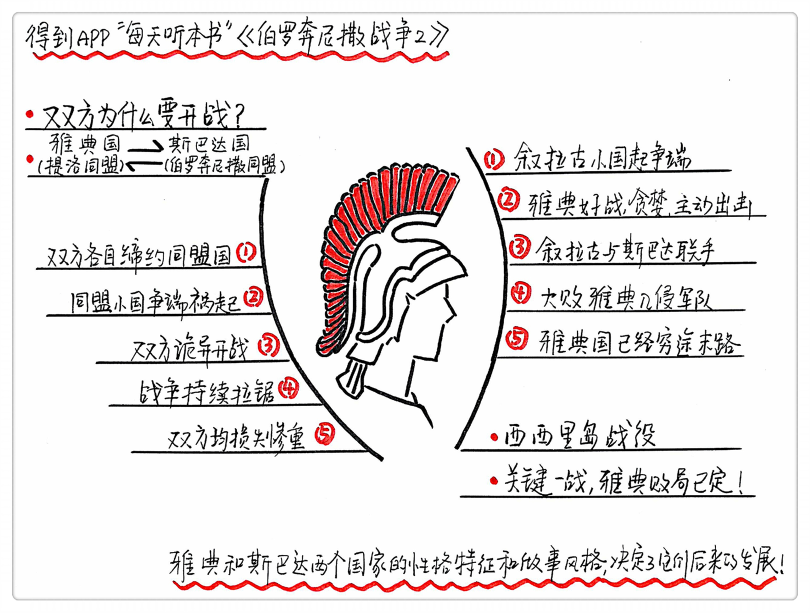 得到APP“每天听本书”《伯罗奔尼撒战争2》
• 双方为什么要开战？
雅典国 → 斯巴达国
• (提洛同盟) ← (伯罗奔尼撒同盟)
双方各自缔约同盟国 ①
同盟小国争端祸起 ②
双方诡异开战 ③
战争持续拉锯 ④
双方均损失惨重 ⑤
① 叙拉古小国起争端
② 雅典好战,贪婪,主动出击
③ 叙拉古与斯巴达联手
④ 大败雅典入侵军队
⑤ 雅典国已经穷途末路
• 西西里岛战役
• 关键一战,雅典败局已定！
雅典和斯巴达两个国家的性格特征和做事风格,决定了它们后来的发展！